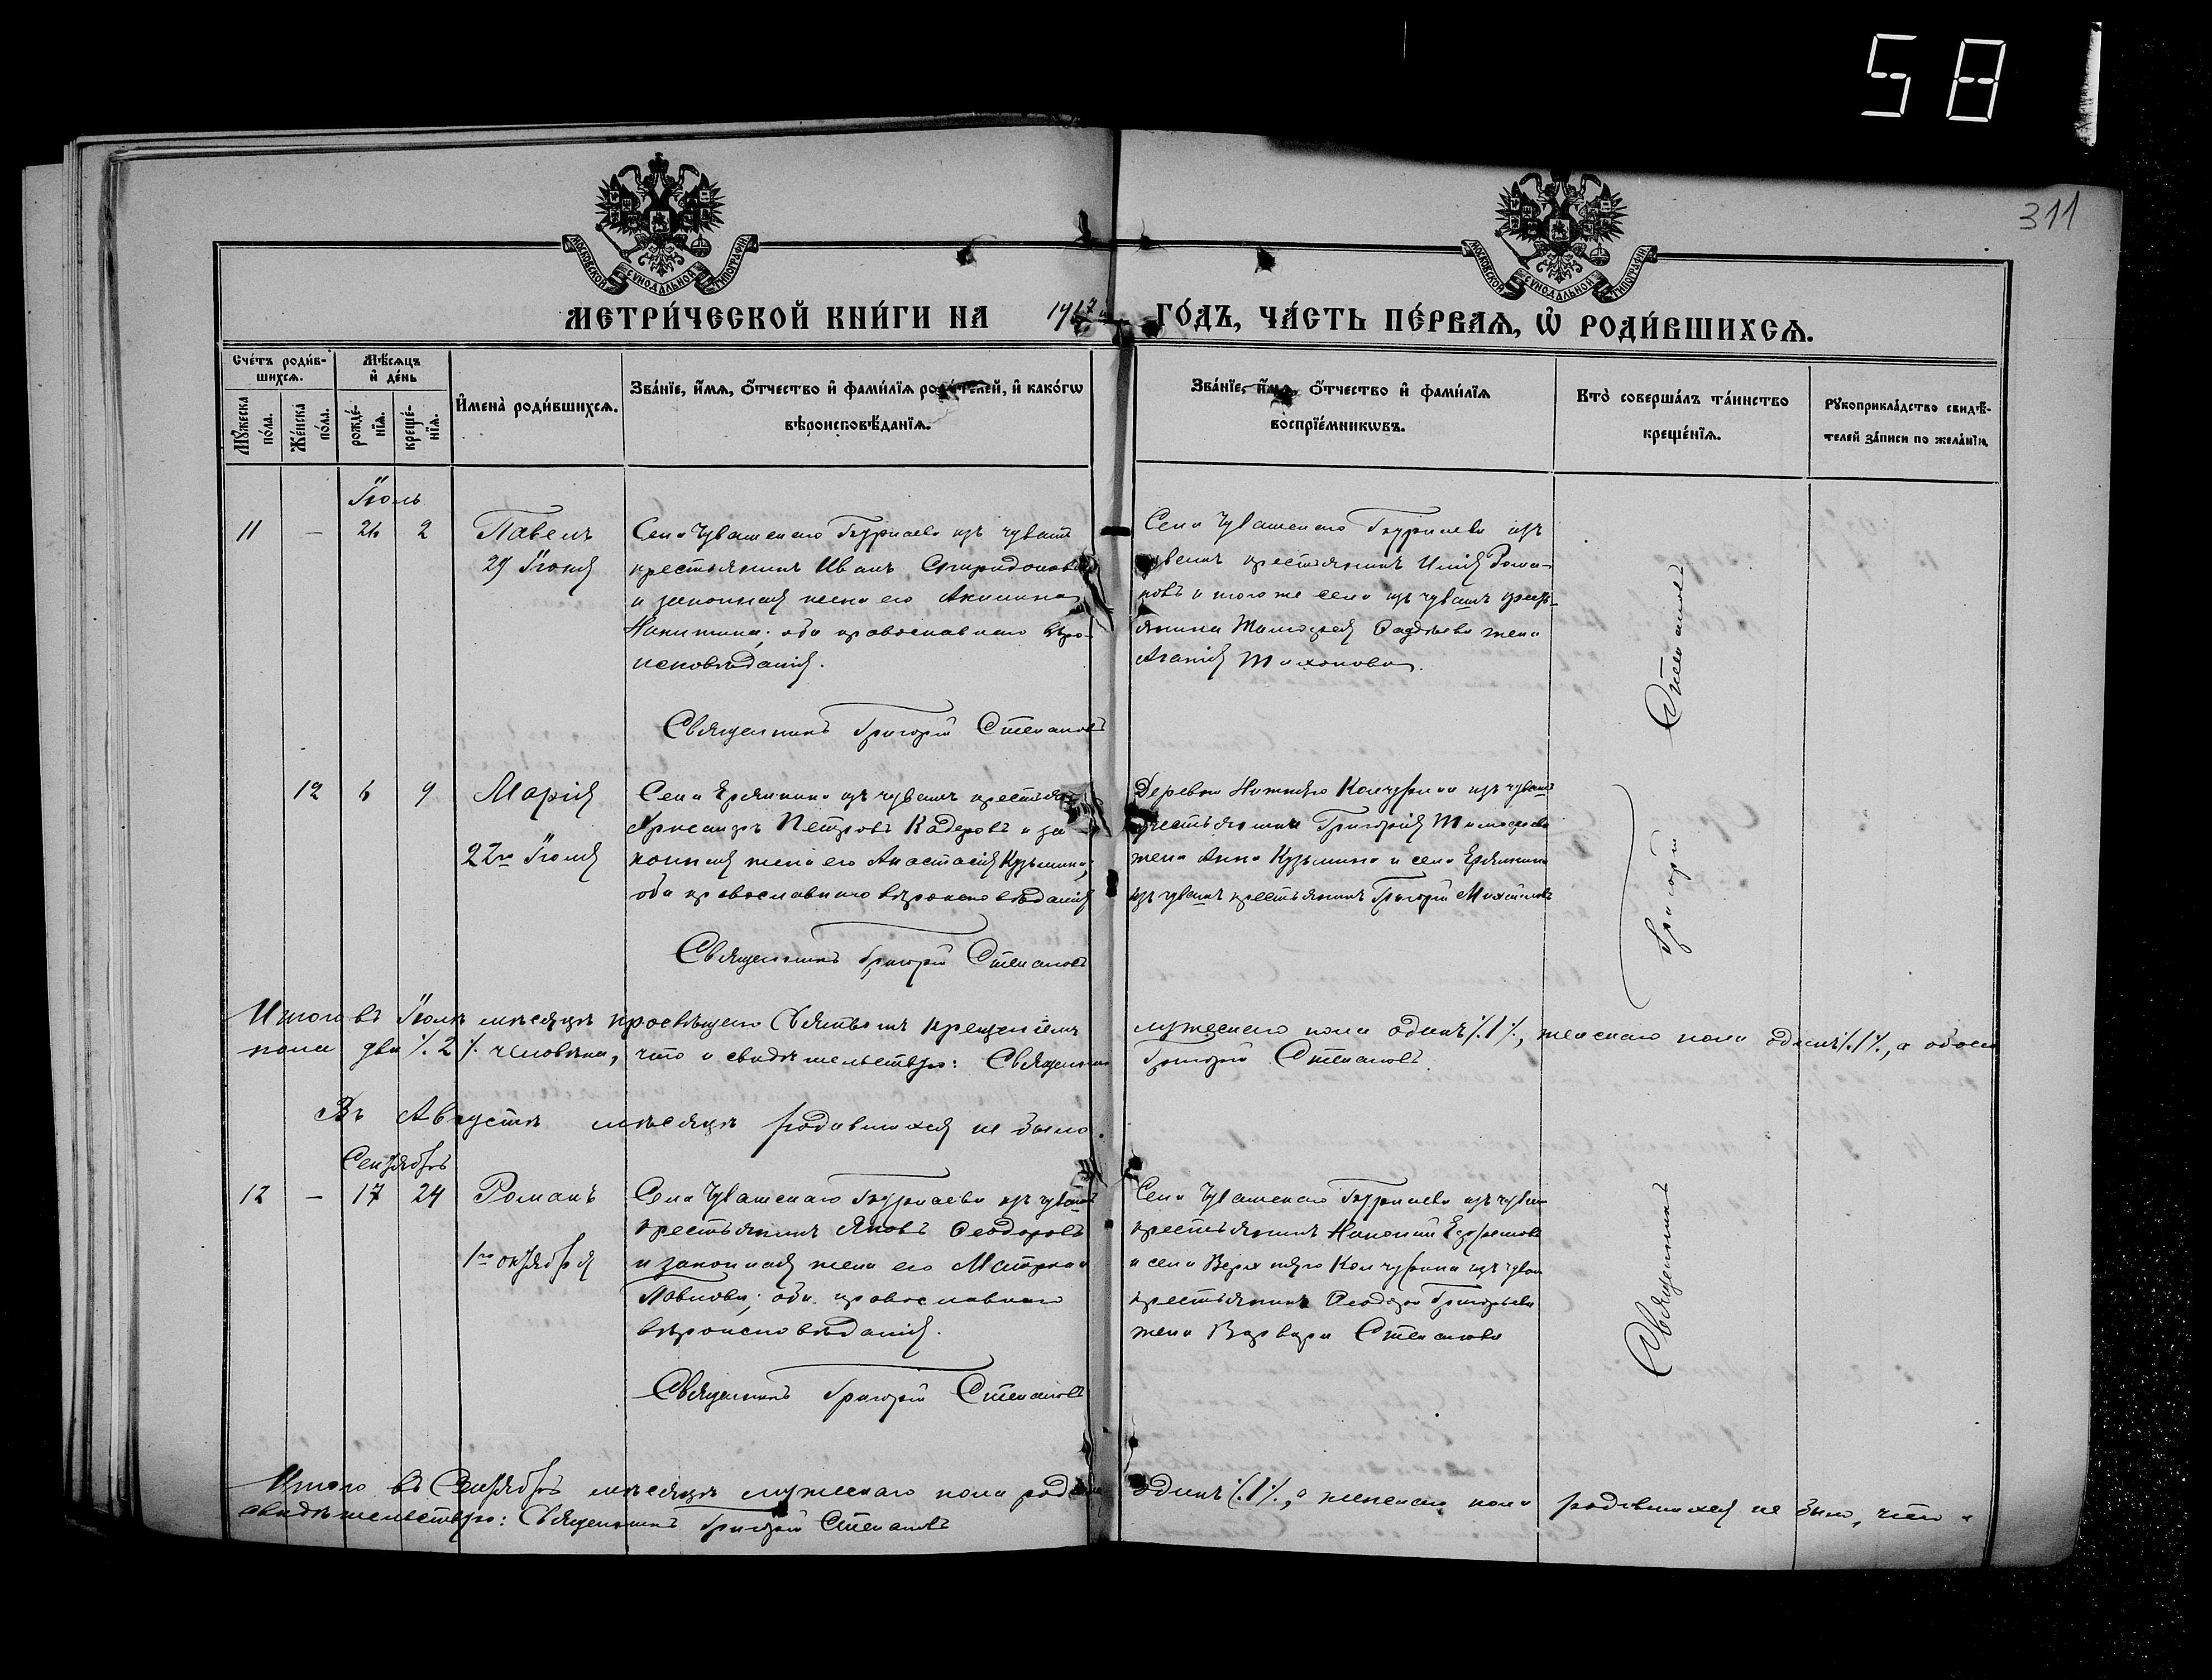 58
311
МОСКОВСКОЙ СѴНОДАЛЬНОЙ ТИПОГРАФІИ
МОСКОВСКОЙ СѴНОДАЛЬНОЙ ТИПОГРАФІИ
МЕТРИ́ЧЕСКОЙ КНИ́ГИ НА 1917 ГО́ДЪ, ЧА́СТЬ ПЕ́РВАѦ, Ѡ҆ РОДИ́ВШИХСѦ.
Сче́тъ роди́вшихсѧ.
Мꙋ́жеска по́ла.
Же́нска по́ла.
Мѣ́сѧцъ и҆ де́нь
рожде́нїѧ.
креще́нїѧ.
И҆мена̀ роди́вшихсѧ.
Зва́нїе, и҆́мѧ, ѻ҆́тчество и҆ фами́лїѧ роди́телей, и҆ како́гѡ вѣроисповѣ́данїѧ.
Зва́нїе, и҆́мѧ, ѻ҆́тчество и҆ фами́лїѧ воспрїе́мникѡвъ.
Кто̀ соверша́лъ та́инство креще́нїѧ.
Рꙋкоприкла́дство свидѣ́телей за́писи по жела́нїю.
Іюль
11 — 26 2 Павелъ
29 Іюня
Села Чувашскаго
крестьянинъ Иванъ Спиридоновъ
и законная жена его Акилина
Никитина; оба православнаго вѣро-
исповѣданія.
Священникъ Григорій Степановъ
Села Чувашскаго изъ
чувашъ крестьянинъ Илія Рома-
новъ и того же села изъ чувашъ крестьянина жена
Агапія Тихонова.
12 6 9 Марія
22го Іюля
Села изъ чувашъ крестьян.
Александръ Петровъ Кадеровъ и за-
конная жена его Анастасія Кузьмина;
оба православнаго вѣроисповѣданія
Священникъ Григорій Степановъ
Деревни Нижняго изъ чувашъ
крестьянина Григорія Тимофеева
жена Анна Кузьмина и села
изъ чувашъ крестьянинъ Григорій Михайловъ
Итого въ Іюлѣ мѣсяцѣ просвѣщено Святымъ крещеніемъ мужескаго пола одинъ /.1/., женскаго пола одинъ /.1/., а обоего
пола два /.2/. человѣка, что и свидѣтельствую: Священникъ Григорій Степановъ.
Въ Августѣ мѣсяцѣ родившихся не было.
Сентябрь
12 — 17 24 Романъ
1го октября
Села Чувашскаго изъ чувашъ
крестьянинъ Яковъ Ѳеодоровъ
и законная жена его Матрона
Павлова; оба православнаго
вѣроисповѣданія.
Священникъ Григорій Степановъ
Села Чувашскаго изъ чувашъ
крестьянинъ Николай Ефремовъ
и села Верхняго изъ чувашъ
крестьянина Ѳеодора Григорьева
жена Варвара Степанова
Священникъ Григорій Степановъ
Итого въ Сентябрѣ мѣсяцѣ мужескаго пола одинъ /.1/., а женскаго пола родившихся не было, что и
свидѣтельствую: Священникъ Григорій Степановъ